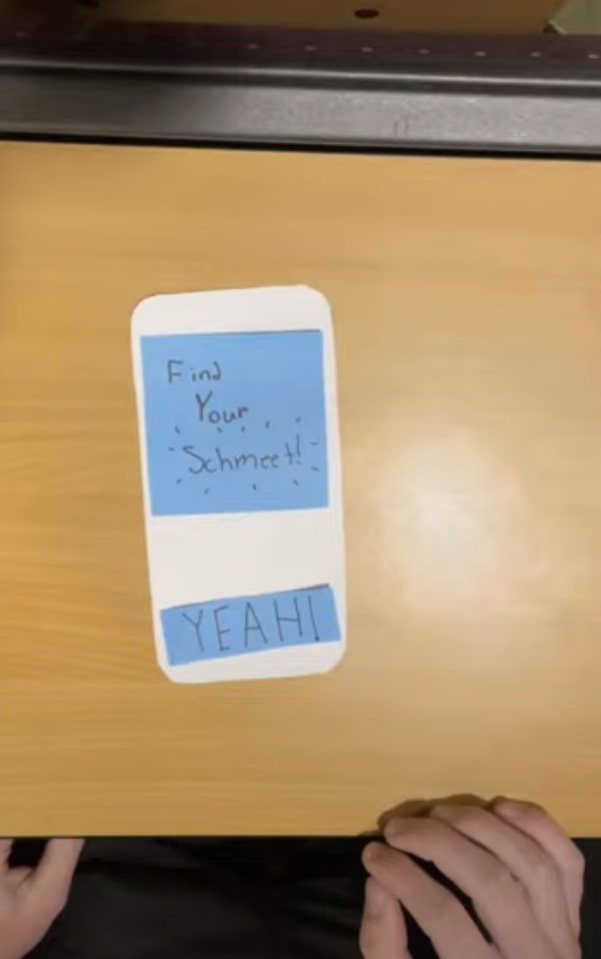 Find
Your
Schmeet!
YEAH!